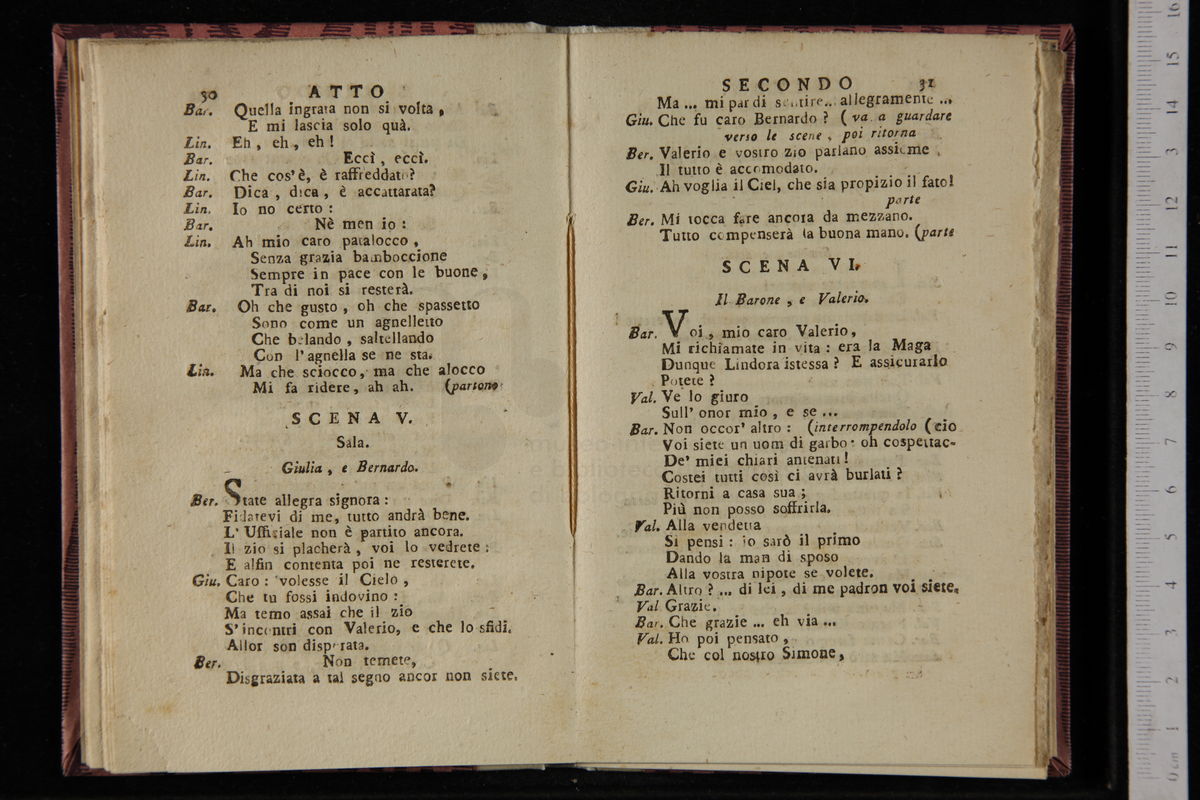 30 ATTO
Bar. Quella ingrata non si volta,
E mi lascia solo quà.
Lin. Eh, eh, eh!
Bar. Eccì, eccì.
Lin. Che cos'è, è raffreddato?
Bar. Dica, dica, è accattarata?
Lin. Io no certo:
Bar. Nè men io:
Lin. Ah mio caro patalocco,
Senza grazia bamboccione
Sempre in pace con le buone,
Tra di noi si resterà.
Bar. Oh che gusto, oh che spassetto
Sono come un agnelletto
Che belando, saltellando
Con l'agnella se ne sta.
Lin. Ma che sciocco, ma che alocco
Mi fa ridere, ah ah. (partono
SCENA V.
Sala.
Giulia, e Bernardo.
Ber. State allegra signora:
Fidatevi di me, tutto andrà bene.
L' Uffiziale non è partito ancora.
Il zio si placherà, voi lo vedrete:
E alfin contenta poi ne resterete.
Giu. Caro: volesse il Cielo,
Che tu fossi indovino:
Ma temo assai che il zio
S'incontri con Valerio, e che lo sfidi.
Allor son disperata.
Ber. Non temete,
Disgraziata a tal segno ancor non siete.
SECONDO 31
Ma ... mi par di sentire... allegramente ...
Giu. Che fu caro Bernardo? (va a guardare
verso le scene, poi ritorna
Ber. Valerio e vostro zio parlano assieme
Il tutto è accomodato.
Giu. Ah voglia il Ciel, che sia propizio il fato!
parte
Ber. Mi tocca fare ancora da mezzano.
Tutto compenserà la buona mano. (parte
SCENA VI.
Il Barone, e Valerio.
Bar. Voi, mio caro Valerio,
Mi richiamate in vita: era la Maga
Dunque Lindora istessa? E assicurarlo
Potete?
Val. Ve lo giuro
Sull' onor mio, e se ...
Bar. Non occor' altro: (interrompendolo (cio
Voi siete un uom di garbo: oh cospettac-
De' miei chiari antenati!
Costei tutti così ci avrà burlati?
Ritorni a casa sua;
Più non posso soffrirla.
Val. Alla vendetta
Si pensi: io sarò il primo
Dando la man di sposo
Alla vostra nipote se volete.
Bar. Altro? ... di lei, di me padron voi siete.
Val Grazie.
Bar. Che grazie ... eh via ...
Val. Ho poi pensato,
Che col nostro Simone,